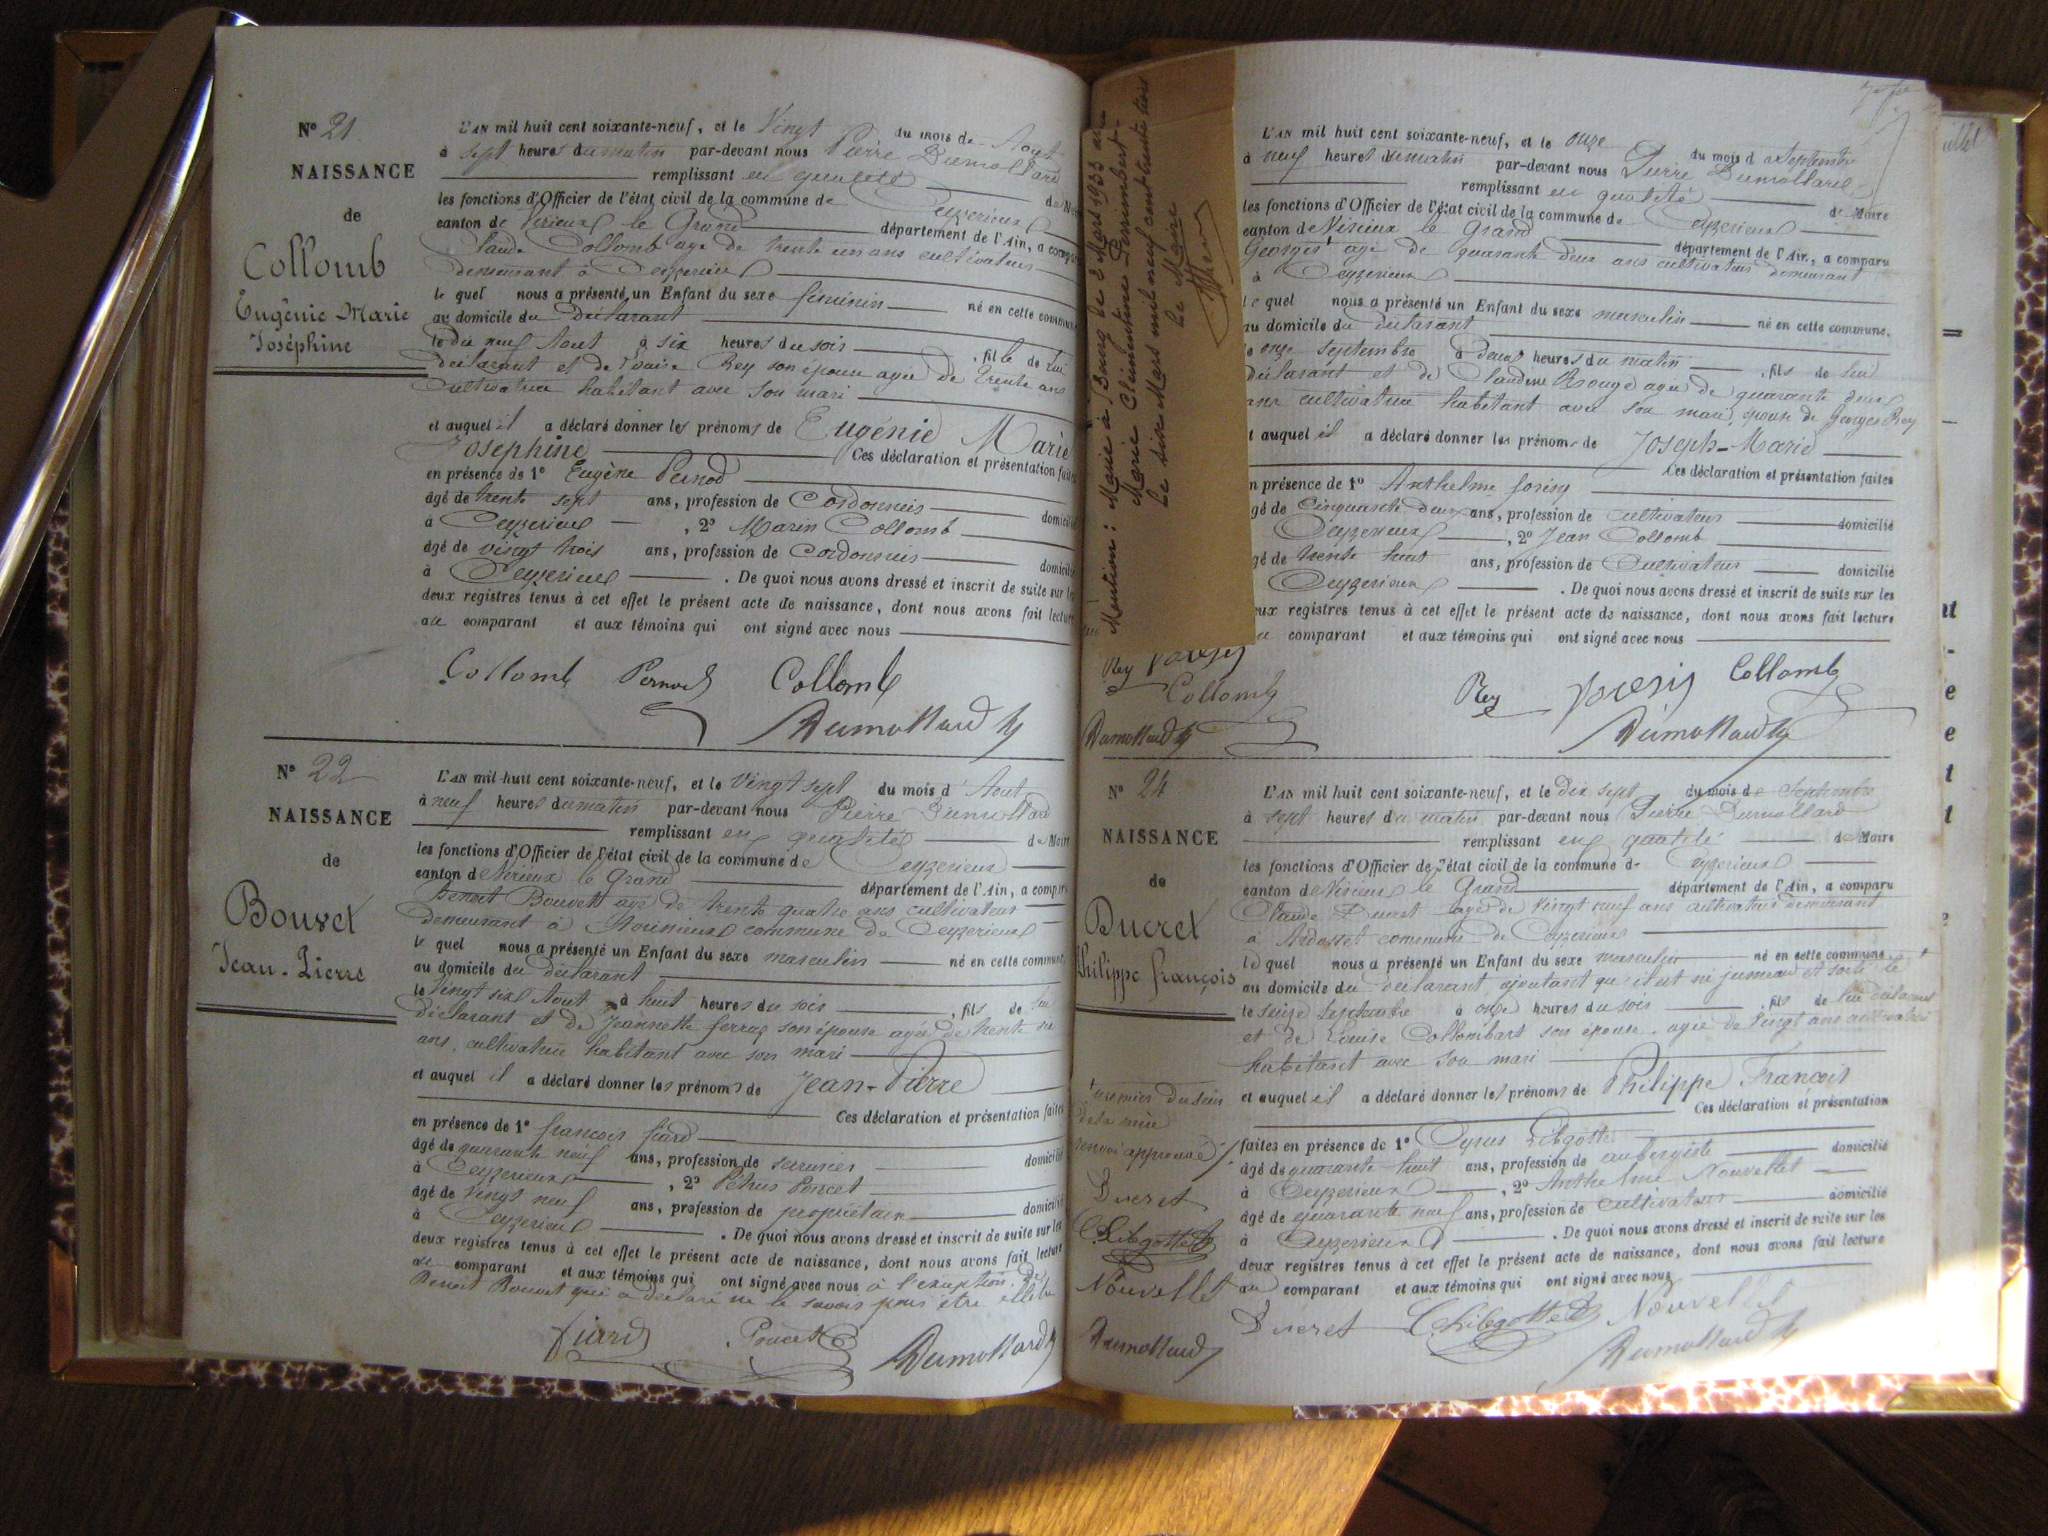 N° 21
NAISSANCE
de
Collomb
Eugénie Marie
Joséphine
L'AN mil huit cent soixante-neuf, et le Vingt du mois de Aout
à sept heures du matin par-devant nous Pierre Dumollard
remplissant en qualité de
les fonctions d'Officier de l'état civil de la commune de Ceyzerieux
canton de Virieux le Grand département de l'Ain, a comparu
Claude Collomb agé de trente un ans cultivateur
demeurant à Ceyzerieux
le quel nous a présenté un Enfant du sexe féminin né en cette commune
au domicile du déclarant
le dix neuf Aout à six heures du soir , fille de lui
déclarant et de Louise Rey son épouse agée de trente ans
cultivatrice habitant avec son mari
et auquel il a déclaré donner les prénoms de Eugénie Marie
Josephine Ces déclaration et présentation faites
en présence de 1° Eugène Pernod
âgé de trente sept ans, profession de Cordonnier domicilié
à Ceyzerieux , 2° Marin Collomb
âgé de vingt trois ans, profession de Cordonnier domicilié
à Ceyzerieux . De quoi nous avons dressé et inscrit de suite sur les
deux registres tenus à cet effet le présent acte de naissance, dont nous avons fait lecture
au comparant et aux témoins qui ont signé avec nous
Collomb Pernod Collomb
Dumollard
N° 22
NAISSANCE
de
Bouvet
Jean-Pierre
L'AN mil huit cent soixante-neuf, et le Vingt sept du mois d'Aout
à neuf heures du matin par-devant nous Pierre Dumollard
remplissant en qualité de Maire
les fonctions d'Officier de l'état civil de la commune de Ceyzerieux
canton de Virieux le Grand département de l'Ain, a comparu
Benoit Bouvet agé de trente quatre ans cultivateur
demeurant à commune de Ceyzerieux
le quel nous a présenté un Enfant du sexe masculin né en cette commune,
au domicile du déclarant
le Vingt six Aout à huit heures du soir , fils de lui
déclarant et de Jeannette ferraz son épouse agée de trente six
ans, cultivatrice habitant avec son mari
et auquel il a déclaré donner les prénoms de Jean-Pierre
Ces déclaration et présentation faites
en présence de 1° françois fiard
âgé de quarante neuf ans, profession de serrurier domicilié
à Ceyzerieux , 2° Pétrus Poncet
âgé de vingt neuf ans, profession de propriétaire domicilié
à Ceyzerieux . De quoi nous avons dressé et inscrit de suite sur les
deux registres tenus à cet effet le présent acte de naissance, dont nous avons fait lecture
au comparant et aux témoins qui ont signé avec nous à l'exception de
Benoit Bouvet qui a déclaré ne le savoir pour être illettré
fiard Poncet Dumollard
Mention : Marié à Bourg le 8 Mars 1933 avec
Marie Clémentine
Le dix Mars mil neuf cent trente trois
Le Maire
Rey
Collomb
Dumollard
L'AN mil huit cent soixante-neuf, et le onze du mois de Septembre
à neuf heures du matin par-devant nous Pierre Dumollard
remplissant en qualité de Maire
les fonctions d'Officier de l'état civil de la commune de Ceyzerieux
canton de Virieux le Grand département de l'Ain, a comparu
Georges agé de quarante deux ans cultivateur demeurant
à Ceyzerieux
le quel nous a présenté un Enfant du sexe masculin né en cette commune,
au domicile du déclarant
le onze septembre à deux heures du matin , fils de lui
déclarant et de Claudine Rouge agée de quarante deux
ans cultivatrice habitant avec son mari, épouse de Georges Rey
et auquel il a déclaré donner les prénoms de Joseph-Marie
Ces déclaration et présentation faites
en présence de 1° Anthelme
âgé de Cinquante deux ans, profession de cultivateur domicilié
Ceyzerieux , 2° Jean Collomb
âgé de trente huit ans, profession de Cultivateur domicilié
Ceyzerieux . De quoi nous avons dressé et inscrit de suite sur les
deux registres tenus à cet effet le présent acte de naissance, dont nous avons fait lecture
au comparant et aux témoins qui ont signé avec nous
Rey Collomb
Dumollard
N° 24
NAISSANCE
de
Ducret
Philippe françois
L'AN mil huit cent soixante-neuf, et le dix sept du mois de Septembre
à sept heures du matin par-devant nous Pierre Dumollard
remplissant en qualité de Maire
les fonctions d'Officier de l'état civil de la commune de Ceyzerieux
canton de Virieux le Grand département de l'Ain, a comparu
Claude Ducret agé de vingt neuf ans cultivateur demeurant
à Ardosset commune de Ceyzerieux
le quel nous a présenté un Enfant du sexe masculin né en cette commune
au domicile du déclarant ajoutant qu'il est né jumeau et sorti le
le seize Septembre à onze heures du soir , fils de lui déclarant
et de Louise Collombart son épouse, agée de vingt ans cultivatrice
habitant avec son mari
et auquel il a déclaré donner les prénoms de Philippe François
Ces déclaration et présentation
faites en présence de 1° Cyrus Libgotte
âgé de quarante huit ans, profession de aubergiste domicilié
à Ceyzerieux , 2° Anthelme Nouvellet
âgé de quarante neuf ans, profession de cultivateur domicilié
à Ceyzerieux . De quoi nous avons dressé et inscrit de suite sur les
deux registres tenus à cet effet le présent acte de naissance, dont nous avons fait lecture
au comparant et aux témoins qui ont signé avec nous
Ducret CLibgotte Nouvellet
Dumollard
premier du sein
de la mère
renvoi approuvé
Ducret
CLibgotte
Nouvellet
Dumollard